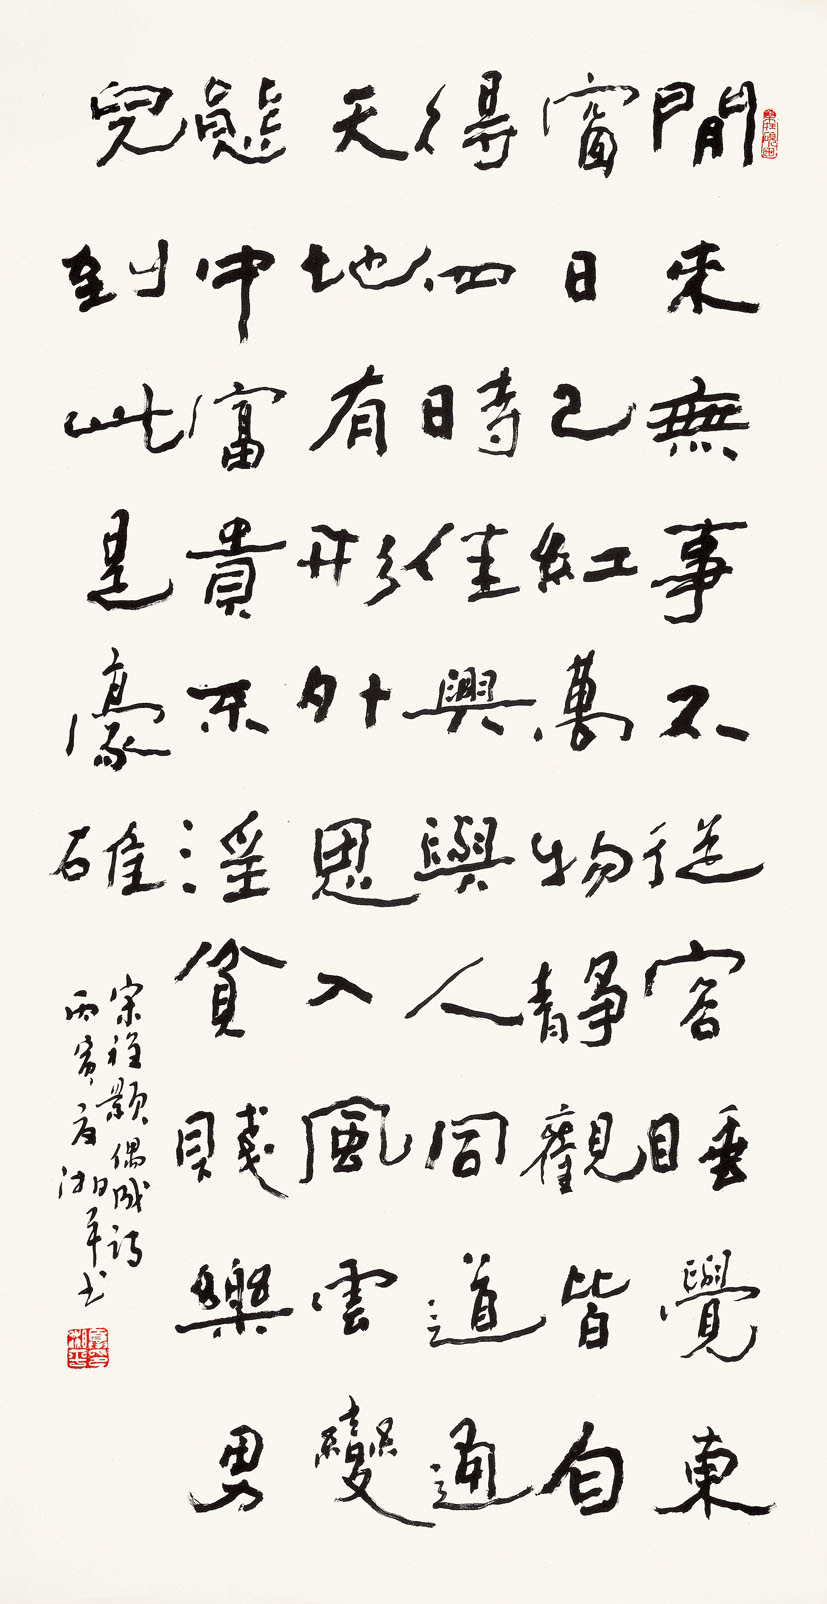 閒來無事不從容睡覺東
窗日已紅萬物靜觀皆自
得四時佳興與人同道通
天地有形外思入風雲變
態中富貴不淫貧賤樂男
兒到此是豪雄
宋程顥偶成詩
丙寅夏湘平书